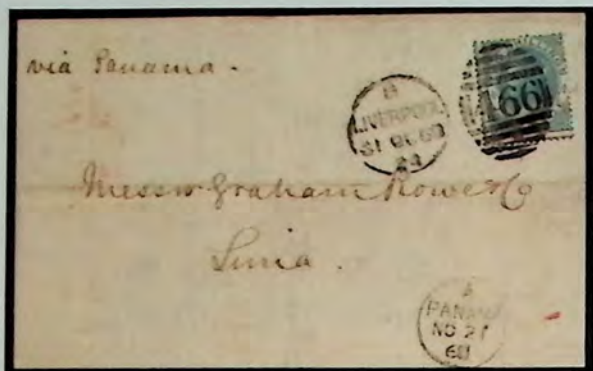 via Panama.
B
LIVERPOOL
31 OC 68
466
Messrs Graham Rowe & Co
Lima.
PANAMA
NO 21
68